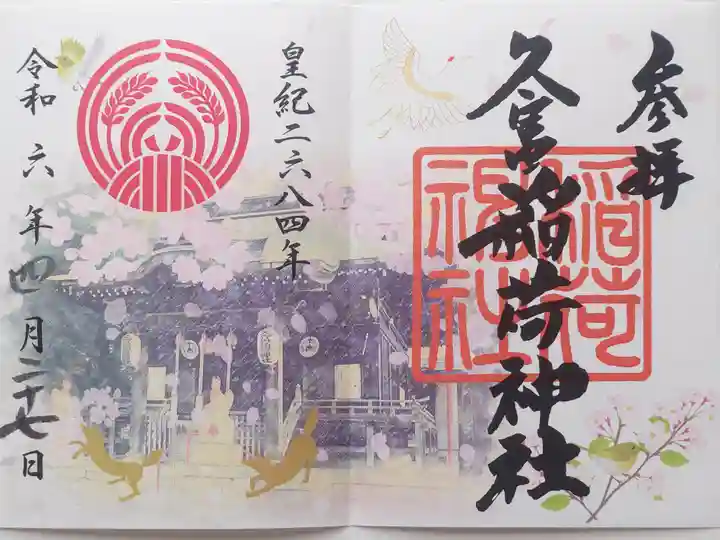 参拝
久富稲荷神社
稲荷
神社
皇紀二六八四年
令和六年四月二十七日